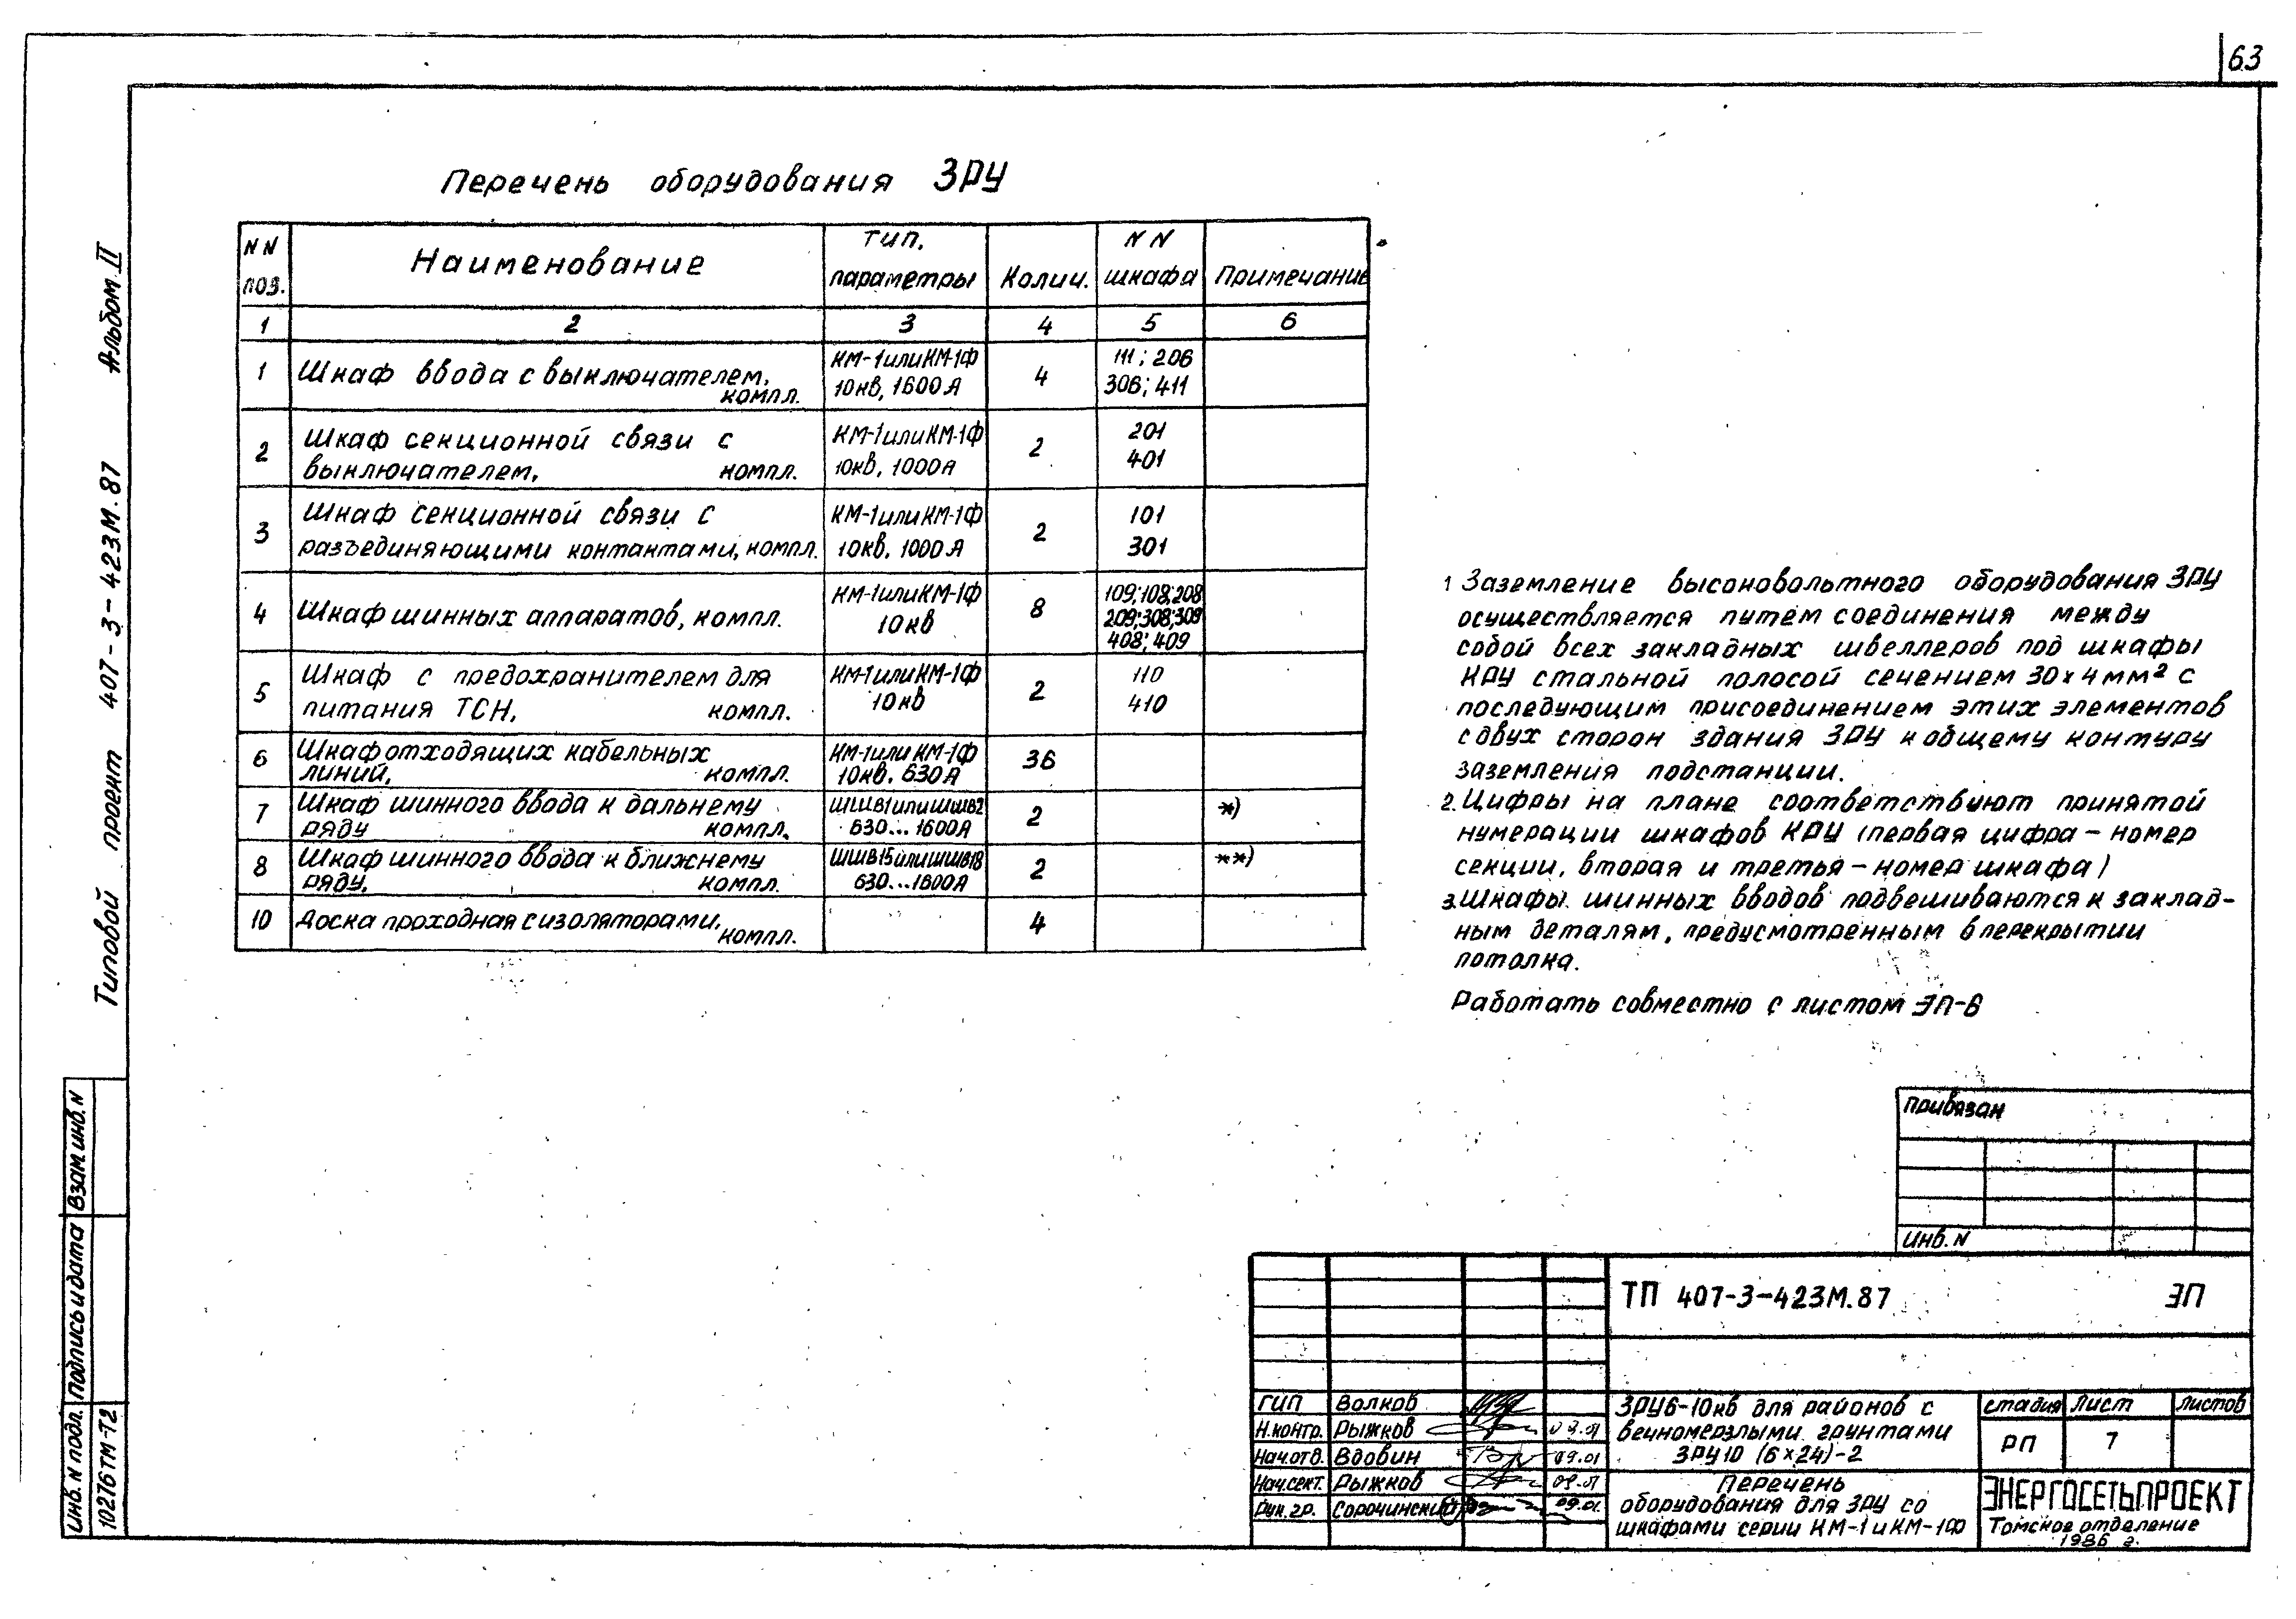 63
Перечень оборудования ЗРУ
NN поз. Наименование Тип, параметры Колич. NN шкафа Примечание
1 2 3 4 5 6
1 Шкаф ввода с выключателем, КМ-1 или КМ-1Ф 4 111; 206
компл. 10кв, 1600А 306; 411
2 Шкаф секционной связи с КМ-1 или КМ-1Ф 2 201
выключателем, компл. 10кв, 1000А 401
3 Шкаф секционной связи с КМ-1 или КМ-1Ф 2 101
разъединяющими контактами, компл. 10кв, 1000А 301
4 Шкаф шинных аппаратов, компл. КМ-1 или КМ-1Ф 8 109; 108; 208
10кв 209; 308; 309
408; 409
5 Шкаф с предохранителем для КМ-1 или КМ-1Ф 2 110
питания ТСН, компл. 10кв 410
6 Шкаф отходящих кабельных КМ-1 или КМ-1Ф 36
линий, компл. 10кв, 630А
7 Шкаф шинного ввода к дальнему ШШВ1 или ШШВ2 2 *)
ряду компл. 630...1600А
8 Шкаф шинного ввода к ближнему ШШВ15 или ШШВ18 2 **)
ряду, компл. 630...1600А
10 Доска проходная с изоляторами, 4
компл.
1 Заземление высоковольтного оборудования ЗРУ
осуществляется путем соединения между
собой всех закладных швеллеров под шкафы
КРУ стальной полосой сечением 30х4мм² с
последующим присоединением этих элементов
с двух сторон здания ЗРУ к общему контуру
заземления подстанции.
2. Цифры на плане соответствуют принятой
нумерации шкафов КРУ (первая цифра – номер
секции, вторая и третья – номер шкафа)
3. Шкафы шинных вводов подвешиваются к заклад-
ным деталям, предусмотренным в перекрытии
потолка.
Работать совместно с листом ЭП-6
Типовой проект 407-3-423М.87 Альбом II
Взам. инв. N
Подпись и дата
Инв. N подл. 10276ТМ-Т2
Привязан
Инв. N
ТП 407-3-423М.87 ЭП
ГИП Волков
Н.контр. Рыжков
Нач.отд. Вдовин 09.01
Нач.сект. Рыжков 09.01
Рук. гр. Сорочинский 09.01.
ЗРУ6-10кв для районов с
вечномерзлыми грунтами
ЗРУ10 (6х24)-2
стадия лист листов
РП 7
Перечень
оборудования для ЗРУ со
шкафами серии КМ-1 и КМ-1Ф
ЭНЕРГОСЕТЬПРОЕКТ
Томское отделение
1986 г.